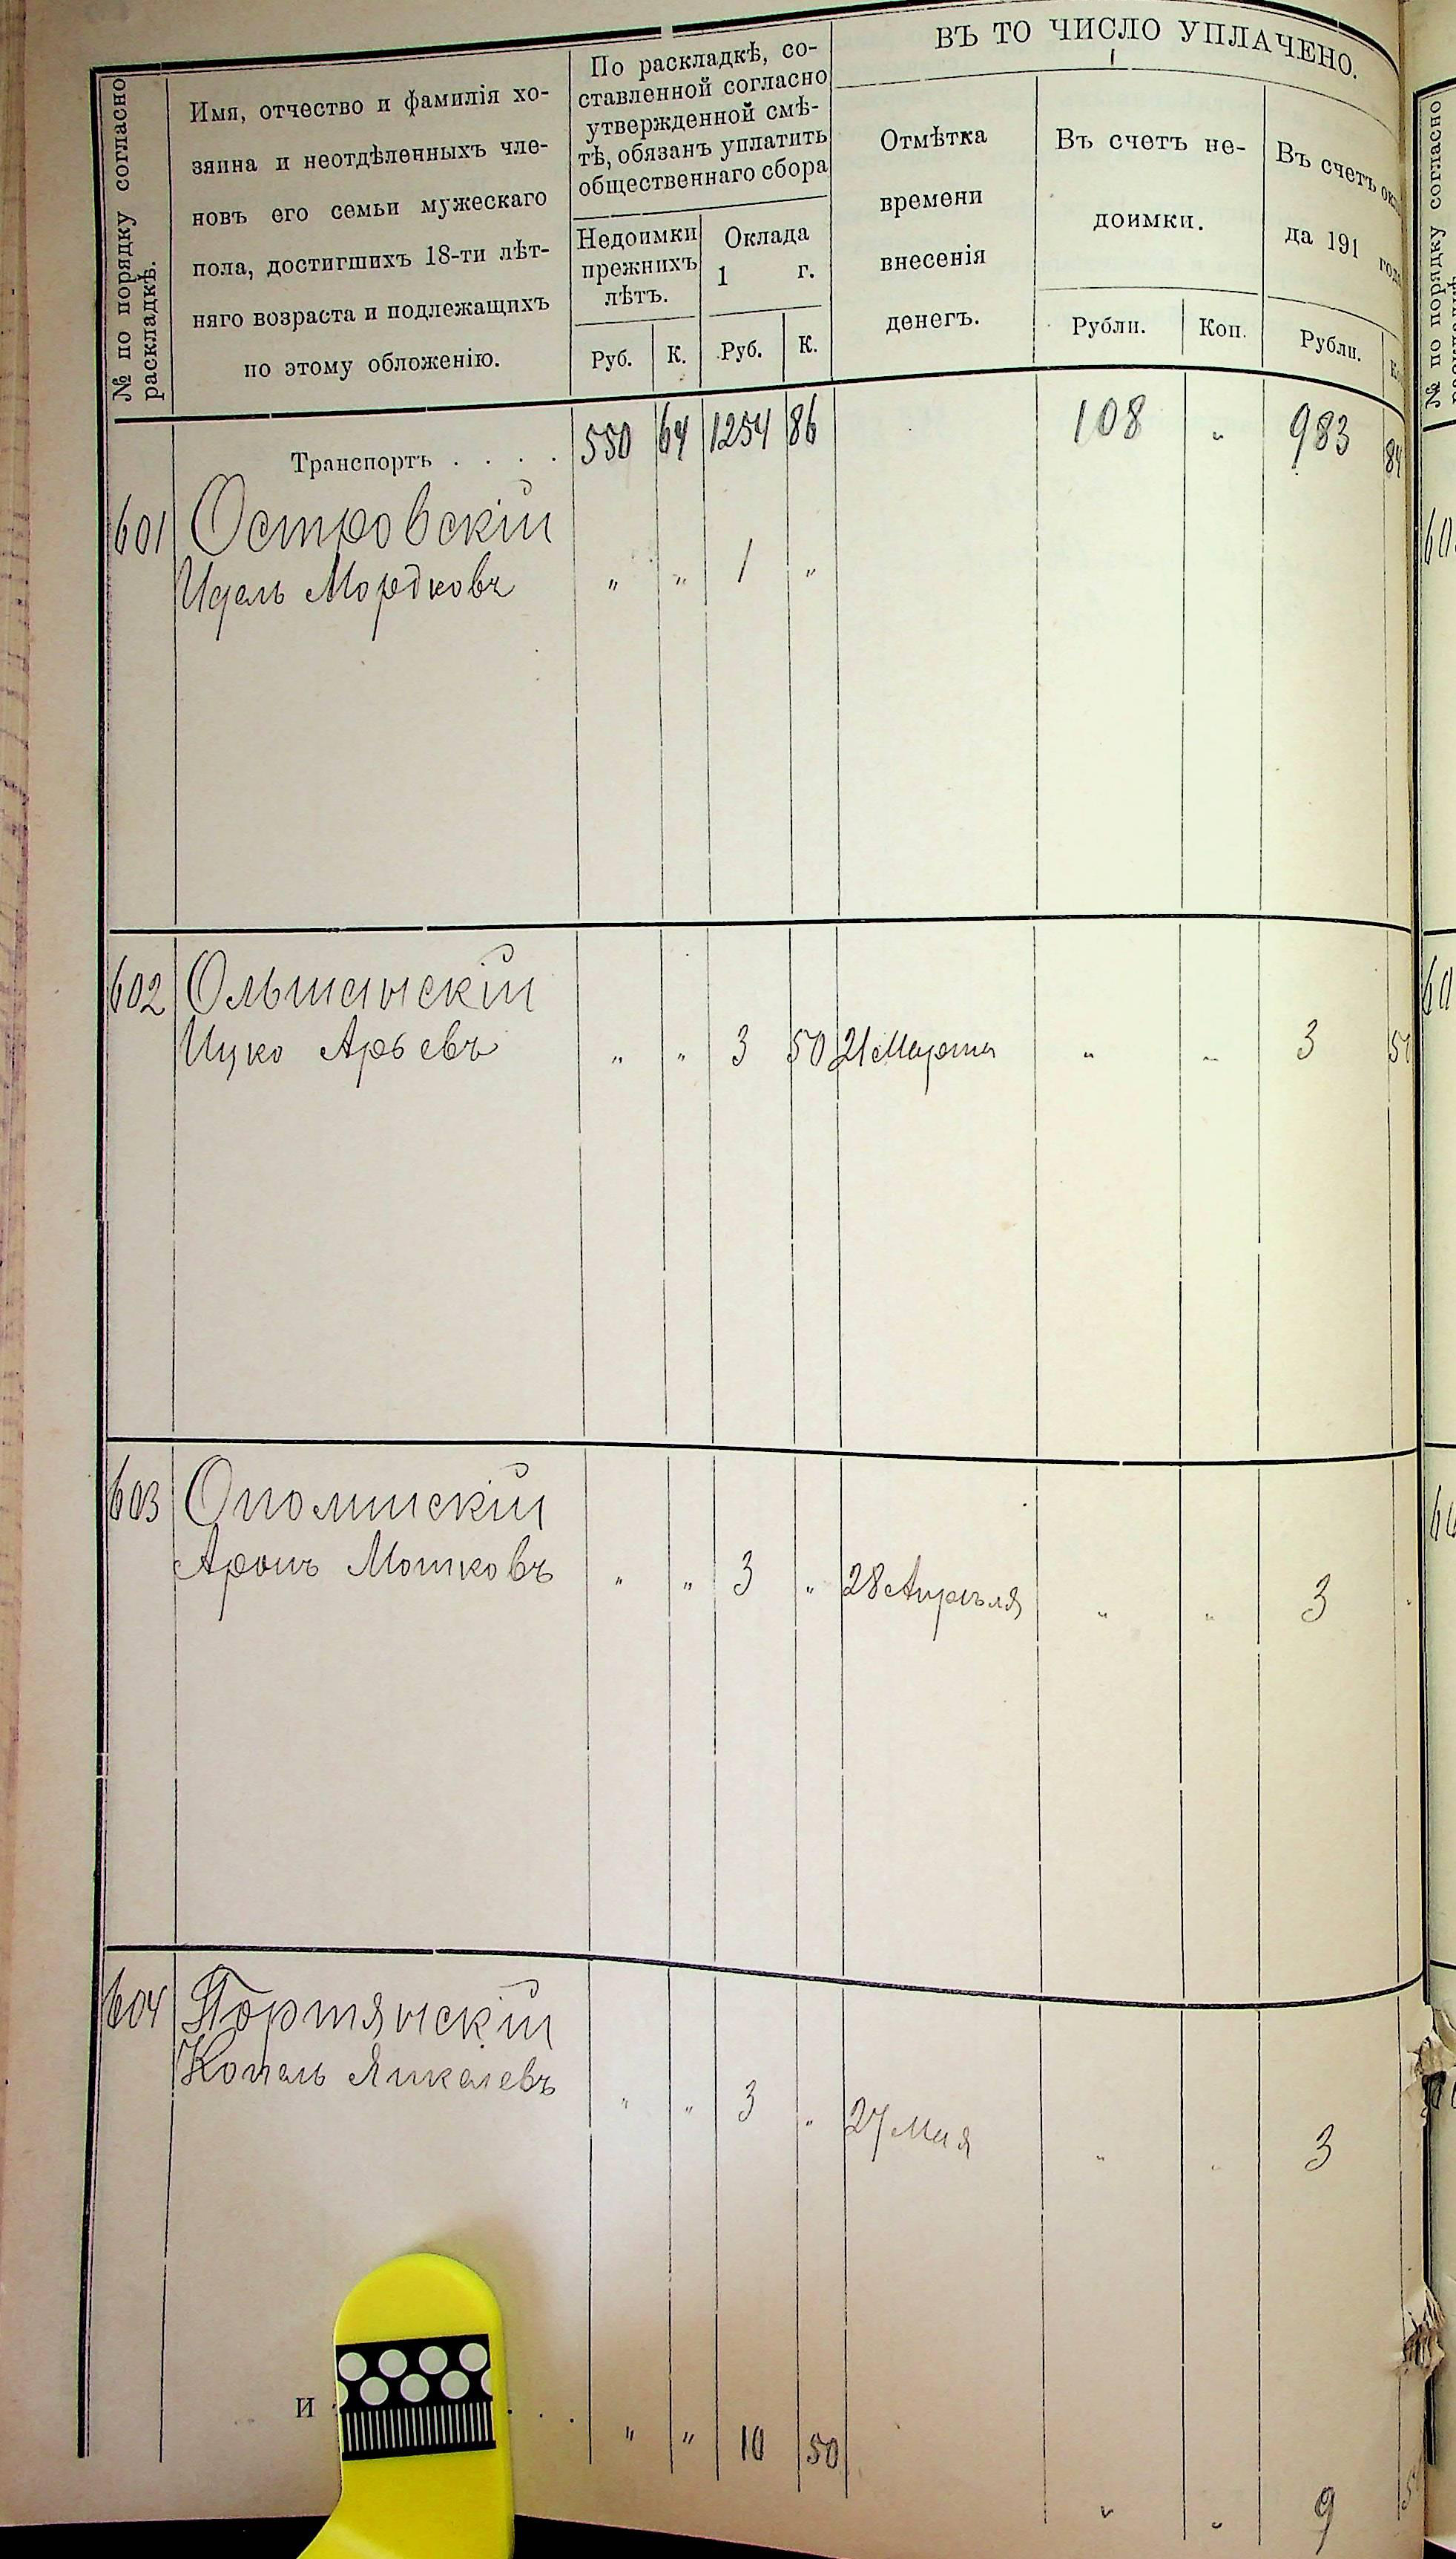 № по порядку согласно
раскладкѣ.
Имя, отчество и фамилія хо-
зяина и неотдѣленныхъ чле-
новъ его семьи мужескаго
пола, достигшихъ 18-ти лѣт-
няго возраста и подлежащихъ
по этому обложенію.
По раскладкѣ, со-
ставленной согласно
утвержденной смѣ-
тѣ, обязанъ уплатить
общественнаго сбора
Недоимки
прежнихъ
лѣтъ.
Оклада
1 г.
Руб. К. Руб. К.
ВЪ ТО ЧИСЛО УПЛАЧЕНО.
Отмѣтка
времени
внесенія
денегъ.
Въ счетъ не-
доимки.
Рубли. Коп.
Въ счетъ
да 191
Рубли.
№ по порядку согласно
Транспортъ . . . . 550 64 1254 86 108 „ 983 84
601 Островскій
Идель Мордковъ „ „ 1 „
602 Ольшанскій
Ицко Арьевъ „ „ 3 50 21 Марта „ „ 3
603 Опошнскій
Аронъ Мошковъ „ „ 3 „ 28 Апрѣля „ „ 3
604 Портянскій
Копель Янкелевъ „ „ 3 „ 27 Мая „ „ 3
И . . . „ „ 10 50 „ „ 9